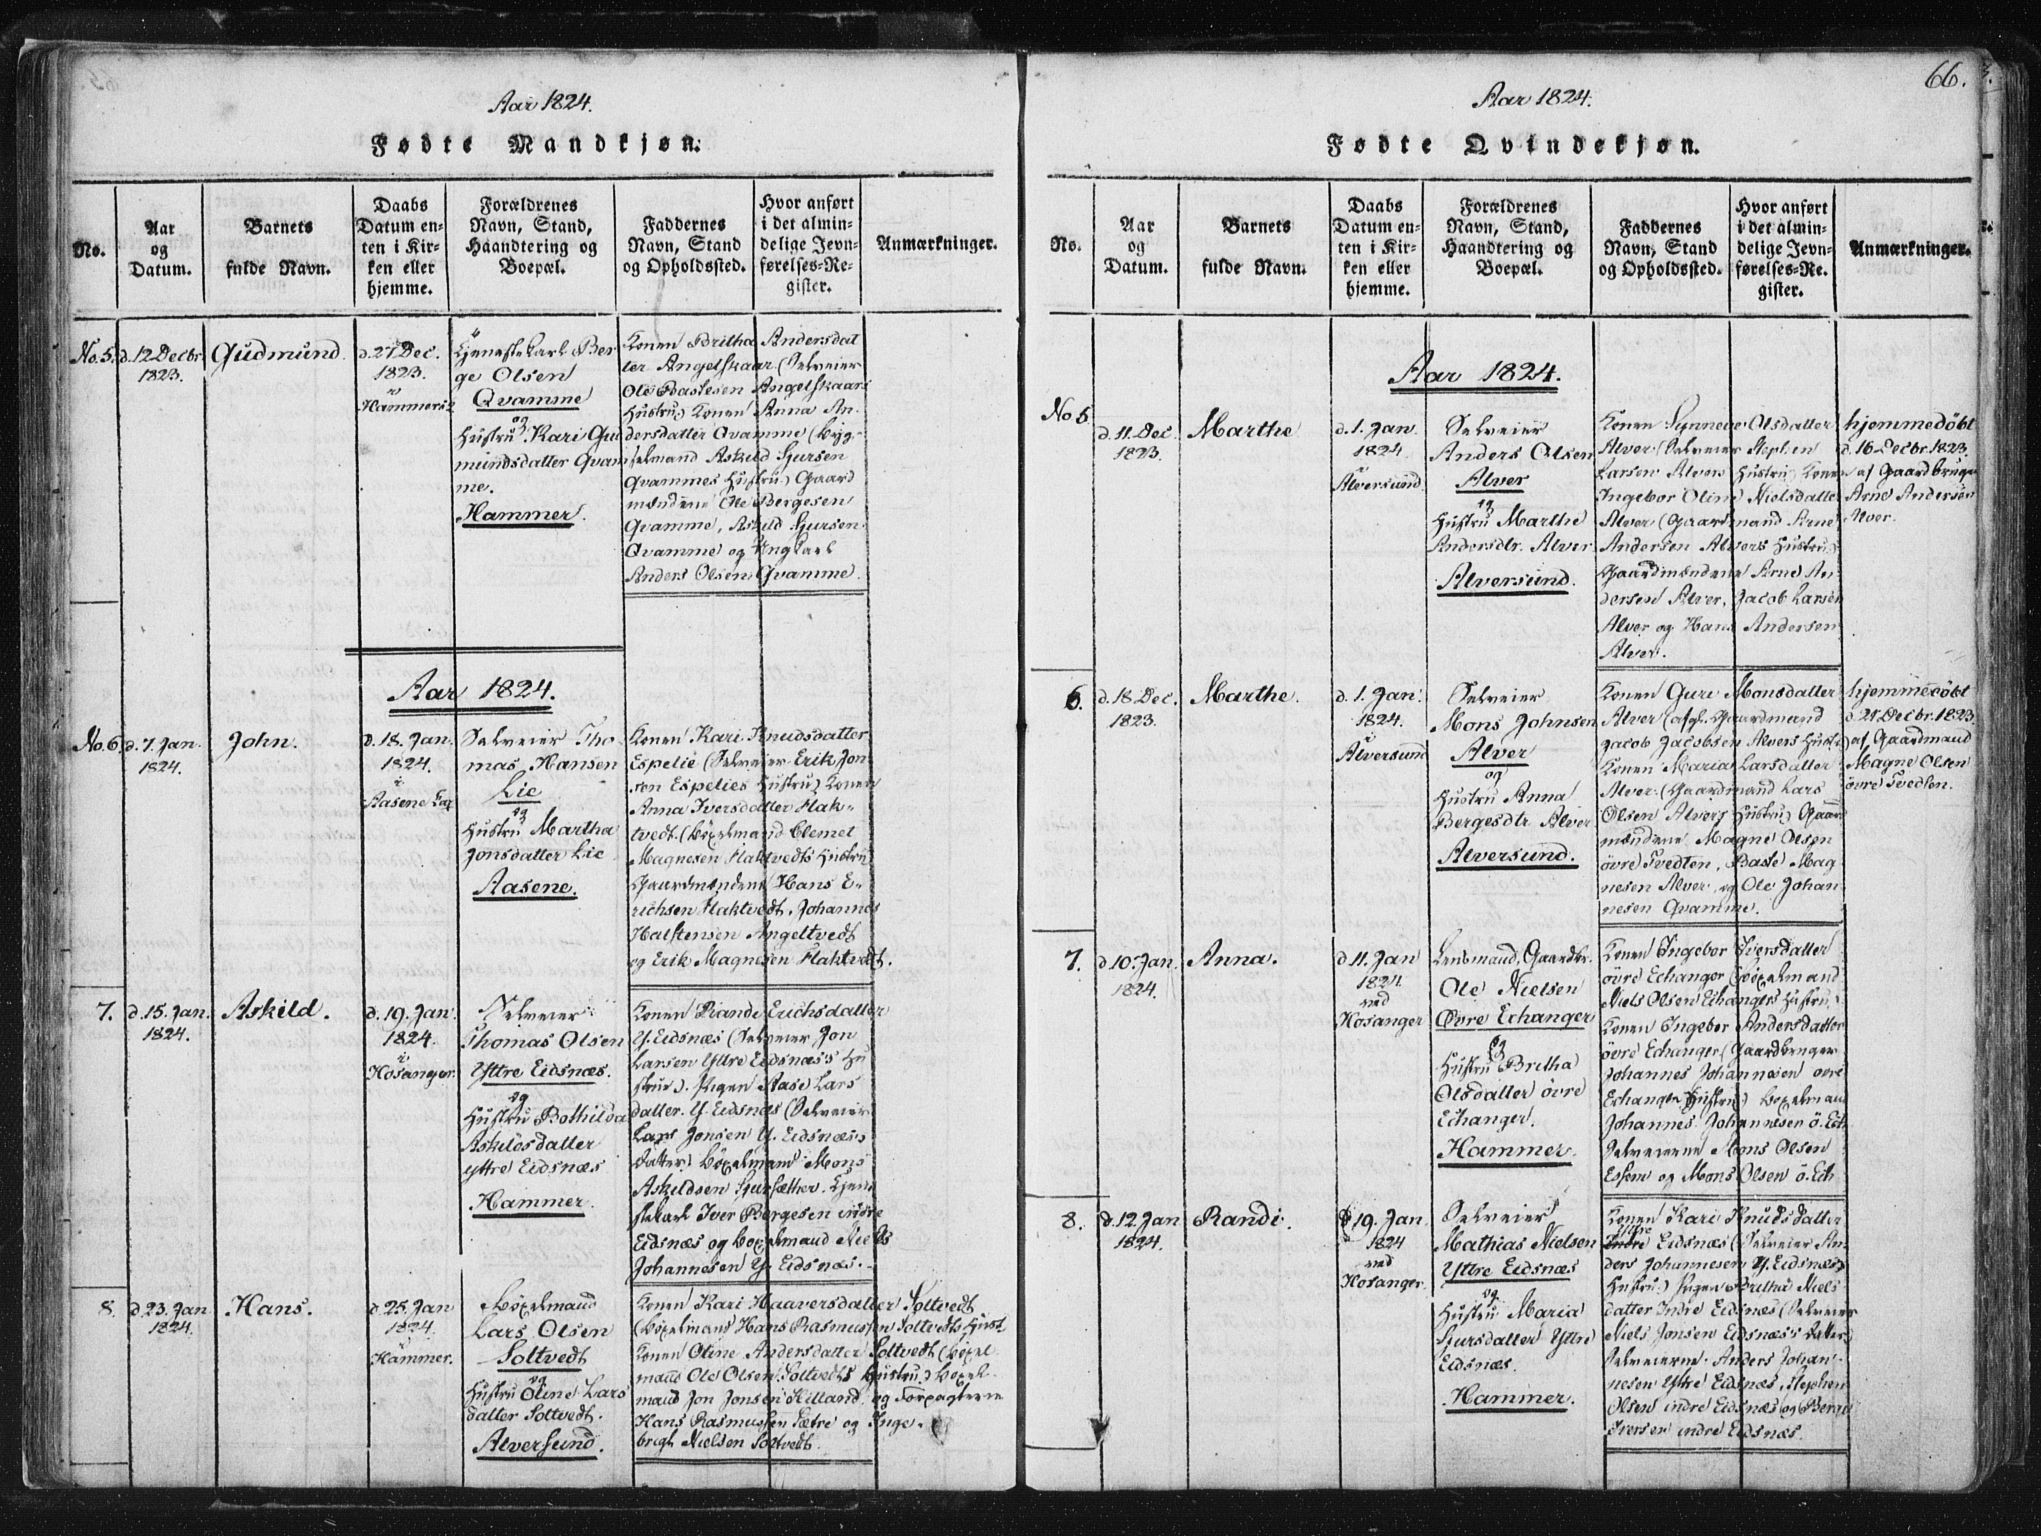 66.
Aar 1824.
Fødte Mandkjøn.
No.
Aar
og
Datum.
Barnets
fulde Navn.
Daabs
Datum en-
ten i Kir-
ken eller
hjemme.
Forældrenes
Navn, Stand,
Haandtering og
Boepæl.
Faddernes
Navn, Stand
og Opholdssted.
Hvor anført
i det almin-
delige Jevn-
førelses-Re-
gister.
Anmærkninger.
No. 5.
d. 12 Decbr
1823.
Gudmund.
d. 27 Dec.
1823.
i
Hammers
Tjenestekarl Ber
ge Olsen
Qvamme
og
Hustru Kari Gud
mundsdatter Qvam
me.
Hammer.
Konen Britha Andersdat
ter Angelskaar (Selveier
Ole Bastesen Angelskaars
Hustru) Konen Anna An-
dersdatter Qvamme (Byg-
selmand Askild Sjursen
Qvammes Hustru) Gaard
mændene Ole Bergesen
Qvamme, Askild Sjursen
Qvamme og Ungkarl
Anders Olsen Qvamme.
Aar 1824.
No. 6
d. 7. Jan.
1824.
John.
d. 18. Jan.
1824.
i
Aasene
Selveier Tho
mas Hansen
Lie
og
Hustru Martha
Jonsdatter Lie
Aasene.
Konen Kari Knudsdatter
Espelie (Selveier Erik Jon
sen Espelies Hustru) Konen
Anna Iversdatter Hak-
tvedt (Böxelmand Clemet
Magnesen Haktvedts Hustru)
Gaardmændene Hans E-
richsen Haktvedt, Johannes
Halstensen Angeltvedt
og Erik Magnesen Haktvedt.
7.
d. 15. Jan.
1824.
Askild.
d. 19. Jan.
1824.
i
Hosanger.
Selveier
Thomas Olsen
Yttre Eidsnæs.
og
Hustru Bothilda
Askildsdatter
yttre Eidsnæs
Hammer.
Konen Randi Erichsdatter
Y. Eidsnæs (Selveier Jon
Larsen Yttre Eidsnæs's Hu
strue). Pigen Aase Lars
datter Y. Eidsnæs (Selveier
Lars Jonsen Y. Eidsnæs's
datter) Böxelmand Mons
Askildsen Sjursæther. Tjene
stekarl Iver Bergesen indre
Eidsnæs og Böxelmand Niels
Johannesen Y. Eidsnæs.
8.
d. 23. Jan
1824.
Hans.
d. 25. Jan
1824.
i
Hammer.
Böxelmand
Lars Olsen
Soltvedt
og
Hustru Oline Lars
datter Soltvedt.
Alversund.
Konen Kari Haaversdatter Soltvedt
(Böxelmand Hans Rasmussen Soltvedts Hust
Konen Oline Andersdatter Soltvedt (Böxel-
mand Ole Olsen Soltvedts Hustru) Böxel-
mand Jon Jonsen Hilland og Forpagterne
Hans Rasmussen Sætre og Inge-
brigt Nielsen Soltvedt.
Aar 1824.
Fødte Qvindekjøn.
No.
Aar
og
Datum.
Barnets
fulde Navn.
Daabs
Datum en-
ten i Kir-
ken eller
hjemme.
Forældrenes
Navn, Stand,
Haandtering og
Boepæl.
Faddernes
Navn, Stand
og Opholdssted.
Hvor anført
i det almin-
delige Jevn-
førelses-Re-
gister.
Anmærkninger.
Aar 1824.
No 5
d. 11. Dec.
1823.
Marthe
d. 1. Jan
1824.
i
Alversund
Selveier
Anders Olsen
Alver
og
Hustru Marthe
Andersdtr. Alver
Alversund.
Konen Synneve Olsdatter
Alver (Selveier Stephen
Larsen Alvers Hustru) Konen
Ingebor Oline Nielsdatter
Alver (Gaardmand Arne
Andersen Alvers Hustru)
Gaardmændene Arne An-
dersen Alver, Jacob Larsen
Alver og Hans Andersen
Alver.
hjemmedöbt
d. 16 Decbr. 1823.
af Gaardbruger
Arne Andersen
Alver.
6.
d. 18 Dec.
1823.
Marthe.
d. 1. Jan.
1824.
i
Alversund
Selveier
Mons Johnsen
Alver
og
Hustru Anna
Bergesdtr Alver
Alversund.
Konen Guri Monsdatter
Alver (afgl. Gaardmand
Jacob Jacobsen Alvers Hustru)
Konen Maria Larsdatter
Alver (Gaardmand Lars
Olsen Alvers Hustru) Gaard
mændene Magne Olsen
övre Tvedten, Baste Mag
nesen Alver, og Ole Johan
nesen Qvamme.
hjemmedöbt
d. 21 Decbr. 1823
af Gaardmand
Magne Olsen
övre Tvedten.
7.
d. 10. Jan.
1824.
Anna.
d. 11. Jan
1824
ved
Hosanger
Lensmand, Gaardbr.
Ole Nielsen
Øvre Echanger
og
Hustru Britha
Olsdatter övre
Echanger.
Hammer.
Konen Ingebor Iversdatter
övre Echanger (Böxelmand
Niels Olsen Echangers Hustru)
Konen Ingebor Andersdatter
övre Echanger (Gaardbruger
Johannes Johannesen övre
Echanger Hustru) Böxelmand
Johannes Johannesen ö. Ech.
Selveierne Mons Olsen
Essem og Mons Olsen ö. Ech
8.
d. 12. Jan
1824.
Randi.
d. 19. Jan.
1824
ved
Hosanger.
Selveier
Mathias Nielsen
Yttre Eidsnæs
og
Hustru Maria
Sjursdatter Yttre
Eidsnæs.
Hammer.
Konen Kari Knudsdatter
yttre
Indre Eidsnæs (Selveier An
ders Johannesen Y. Eidsnæs's
Hustru) Pigen Britha Niels
datter Indre Eidsnæs (Selveier
Niels Jonsen Eidsnæs's Datter)
Selveierne Anders Johan-
nesen Yttre Eidsnæs, Stephen
Olsen indre Eidsnæs og Berge
Iversen indre Eidsnæs.